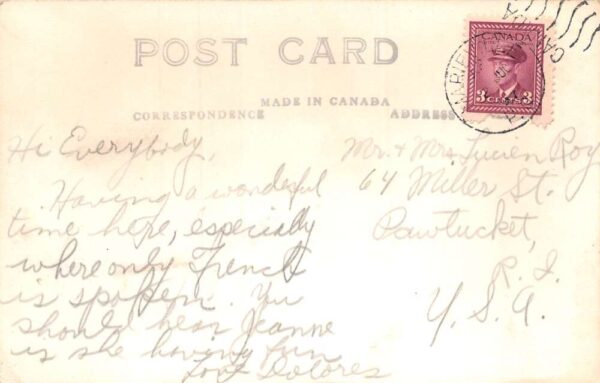 POST CARD
CANADA
3 CENTS 3
MADE IN CANADA
CORRESPONDENCE
ADDRESS
Hi Everybody,
Having a wonderful
time here, especially
where only French
is spoken. You
should hear Jeanne
is she having fun
Love Dolores
Mr. & Mrs. Lucien Roy
64 Miller St.
Pawtucket,
R. I.
U. S. A.